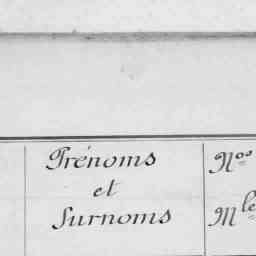 Prénoms
et
Surnoms
Nos
Mle